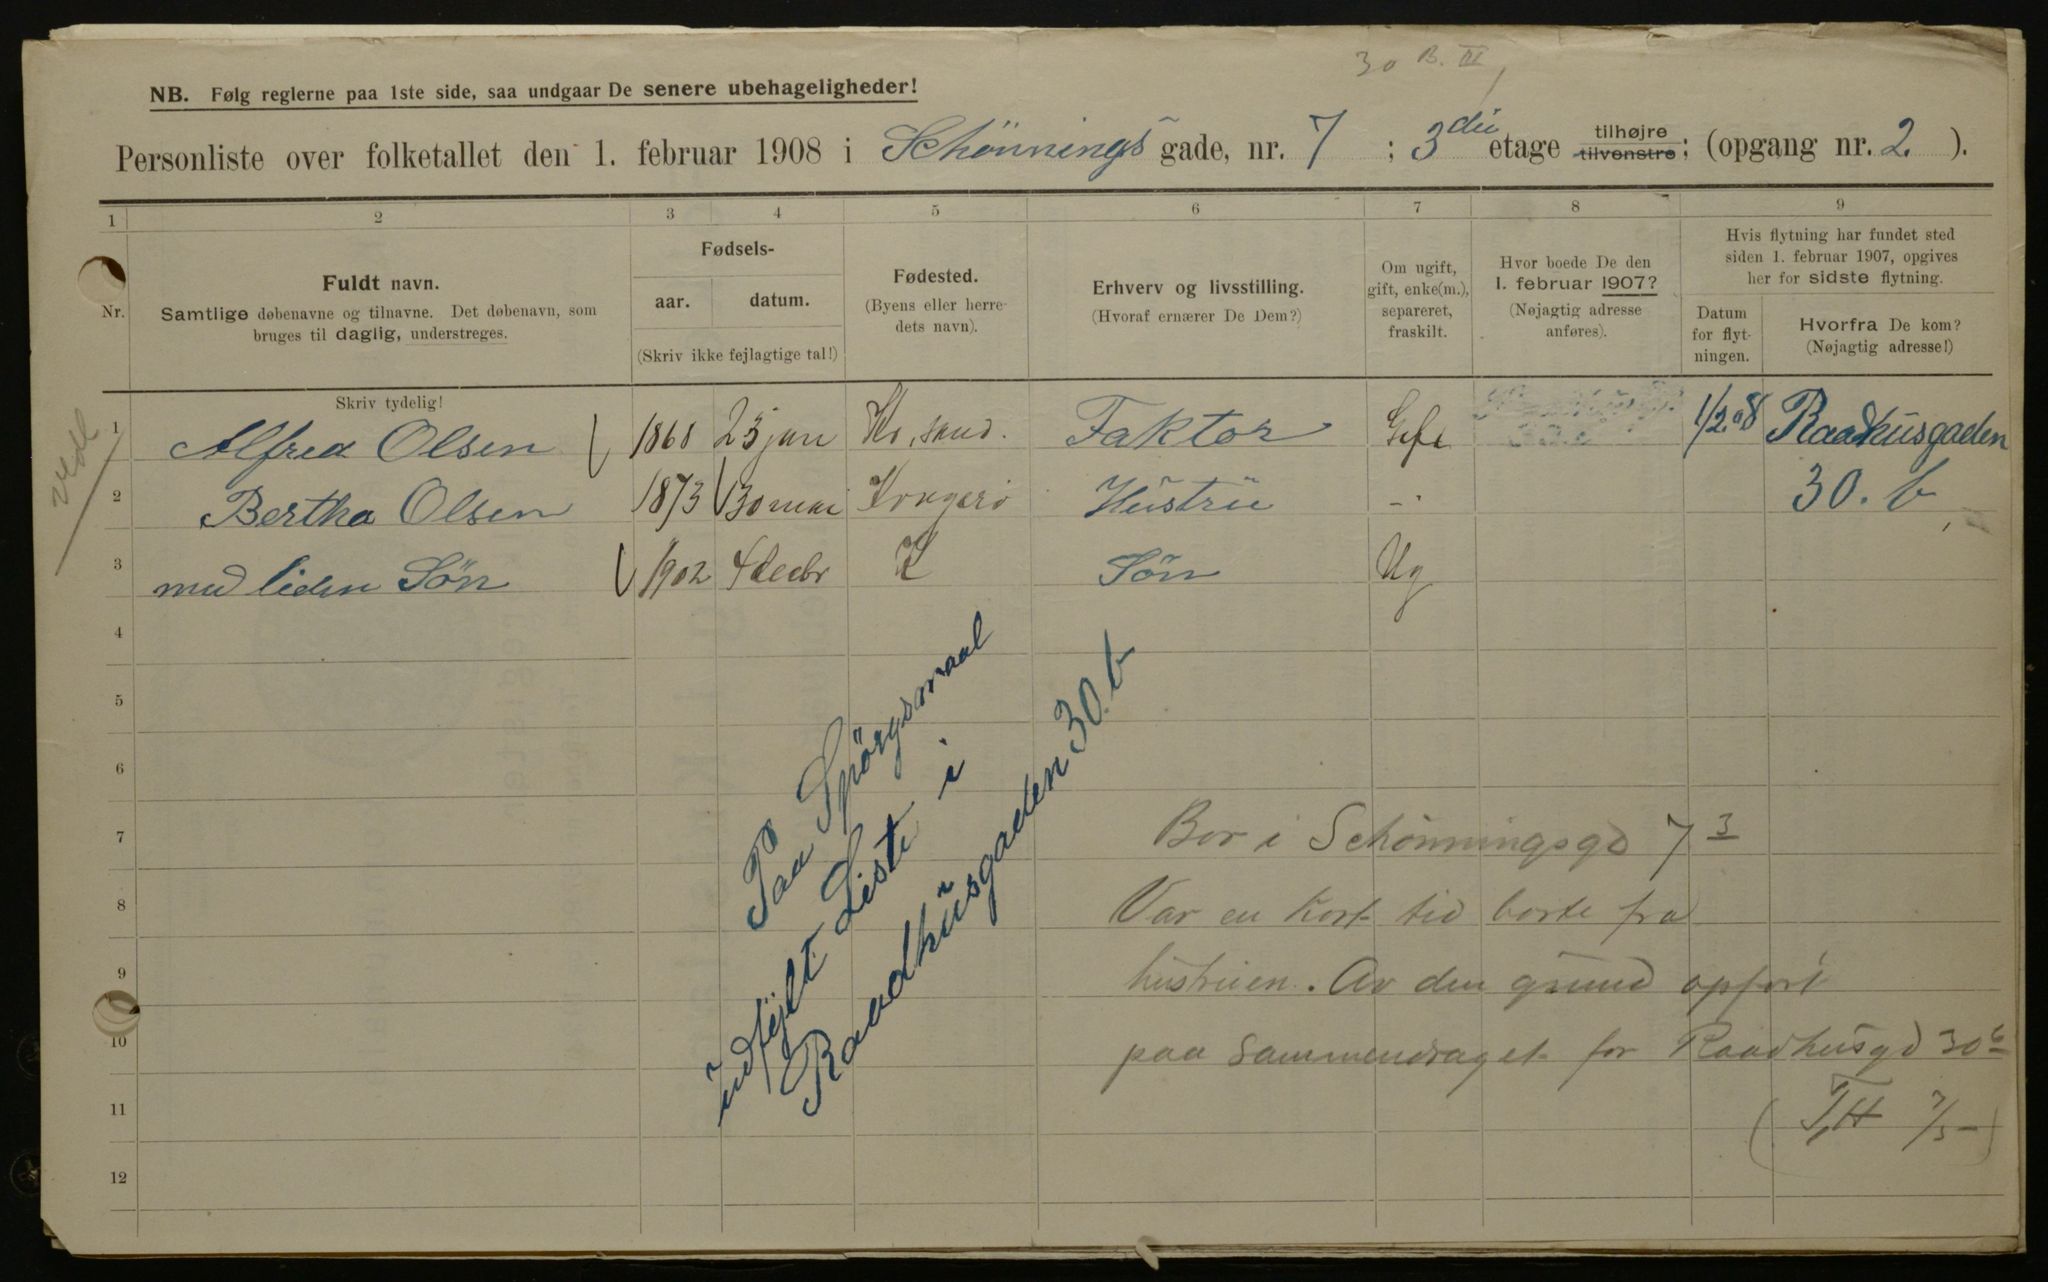 30 B. III
NB. Følg reglerne paa 1ste side, saa undgaar De senere ubehageligheder!
Personliste over folketallet den 1. februar 1908 i Schønnings gade, nr. 7 ; 3die etage tilhøjre tilvenstre; (opgang nr. 2. ).
1 2 3 4 5 6 7 8 9
Nr.
Fuldt navn.
Samtlige døbenavne og tilnavne. Det døbenavn, som
bruges til daglig, understreges.
Fødsels-
aar. datum.
(Skriv ikke fejlagtige tal!)
Fødested.
(Byens eller herre-
dets navn).
Erhverv og livsstilling.
(Hvoraf ernærer De Dem?)
Om ugift,
gift, enke(m.),
separeret,
fraskilt.
Hvor boede De den
1. februar 1907?
(Nøjagtig adresse
anføres).
Hvis flytning har fundet sted
siden 1. februar 1907, opgives
her for sidste flytning.
Datum
for flyt-
ningen.
Hvorfra De kom?
(Nøjagtig adresse!)
Skriv tydelig!
1 Alfred Olsen 1868 23 jan Kr. sund. Faktor Gift 1/2 08 Raadhusgaden
2 Bertha Olsen 1873 30 mai Kragerø Hustru -"- 30. b
3 med liden Søn 1902 4 decbr K Søn Ug
4
5
6
7
8
9
10
11
12
Paa Spörgsmaal
udfyldt Liste i
Raadhusgaden 30. b
Bor i Schønningsgd 7 3
Var en kort tid borte fra
hustruen. Av den grund opført
paa sammendraget for Raadhusgd 30b
(T.H 7/5-)